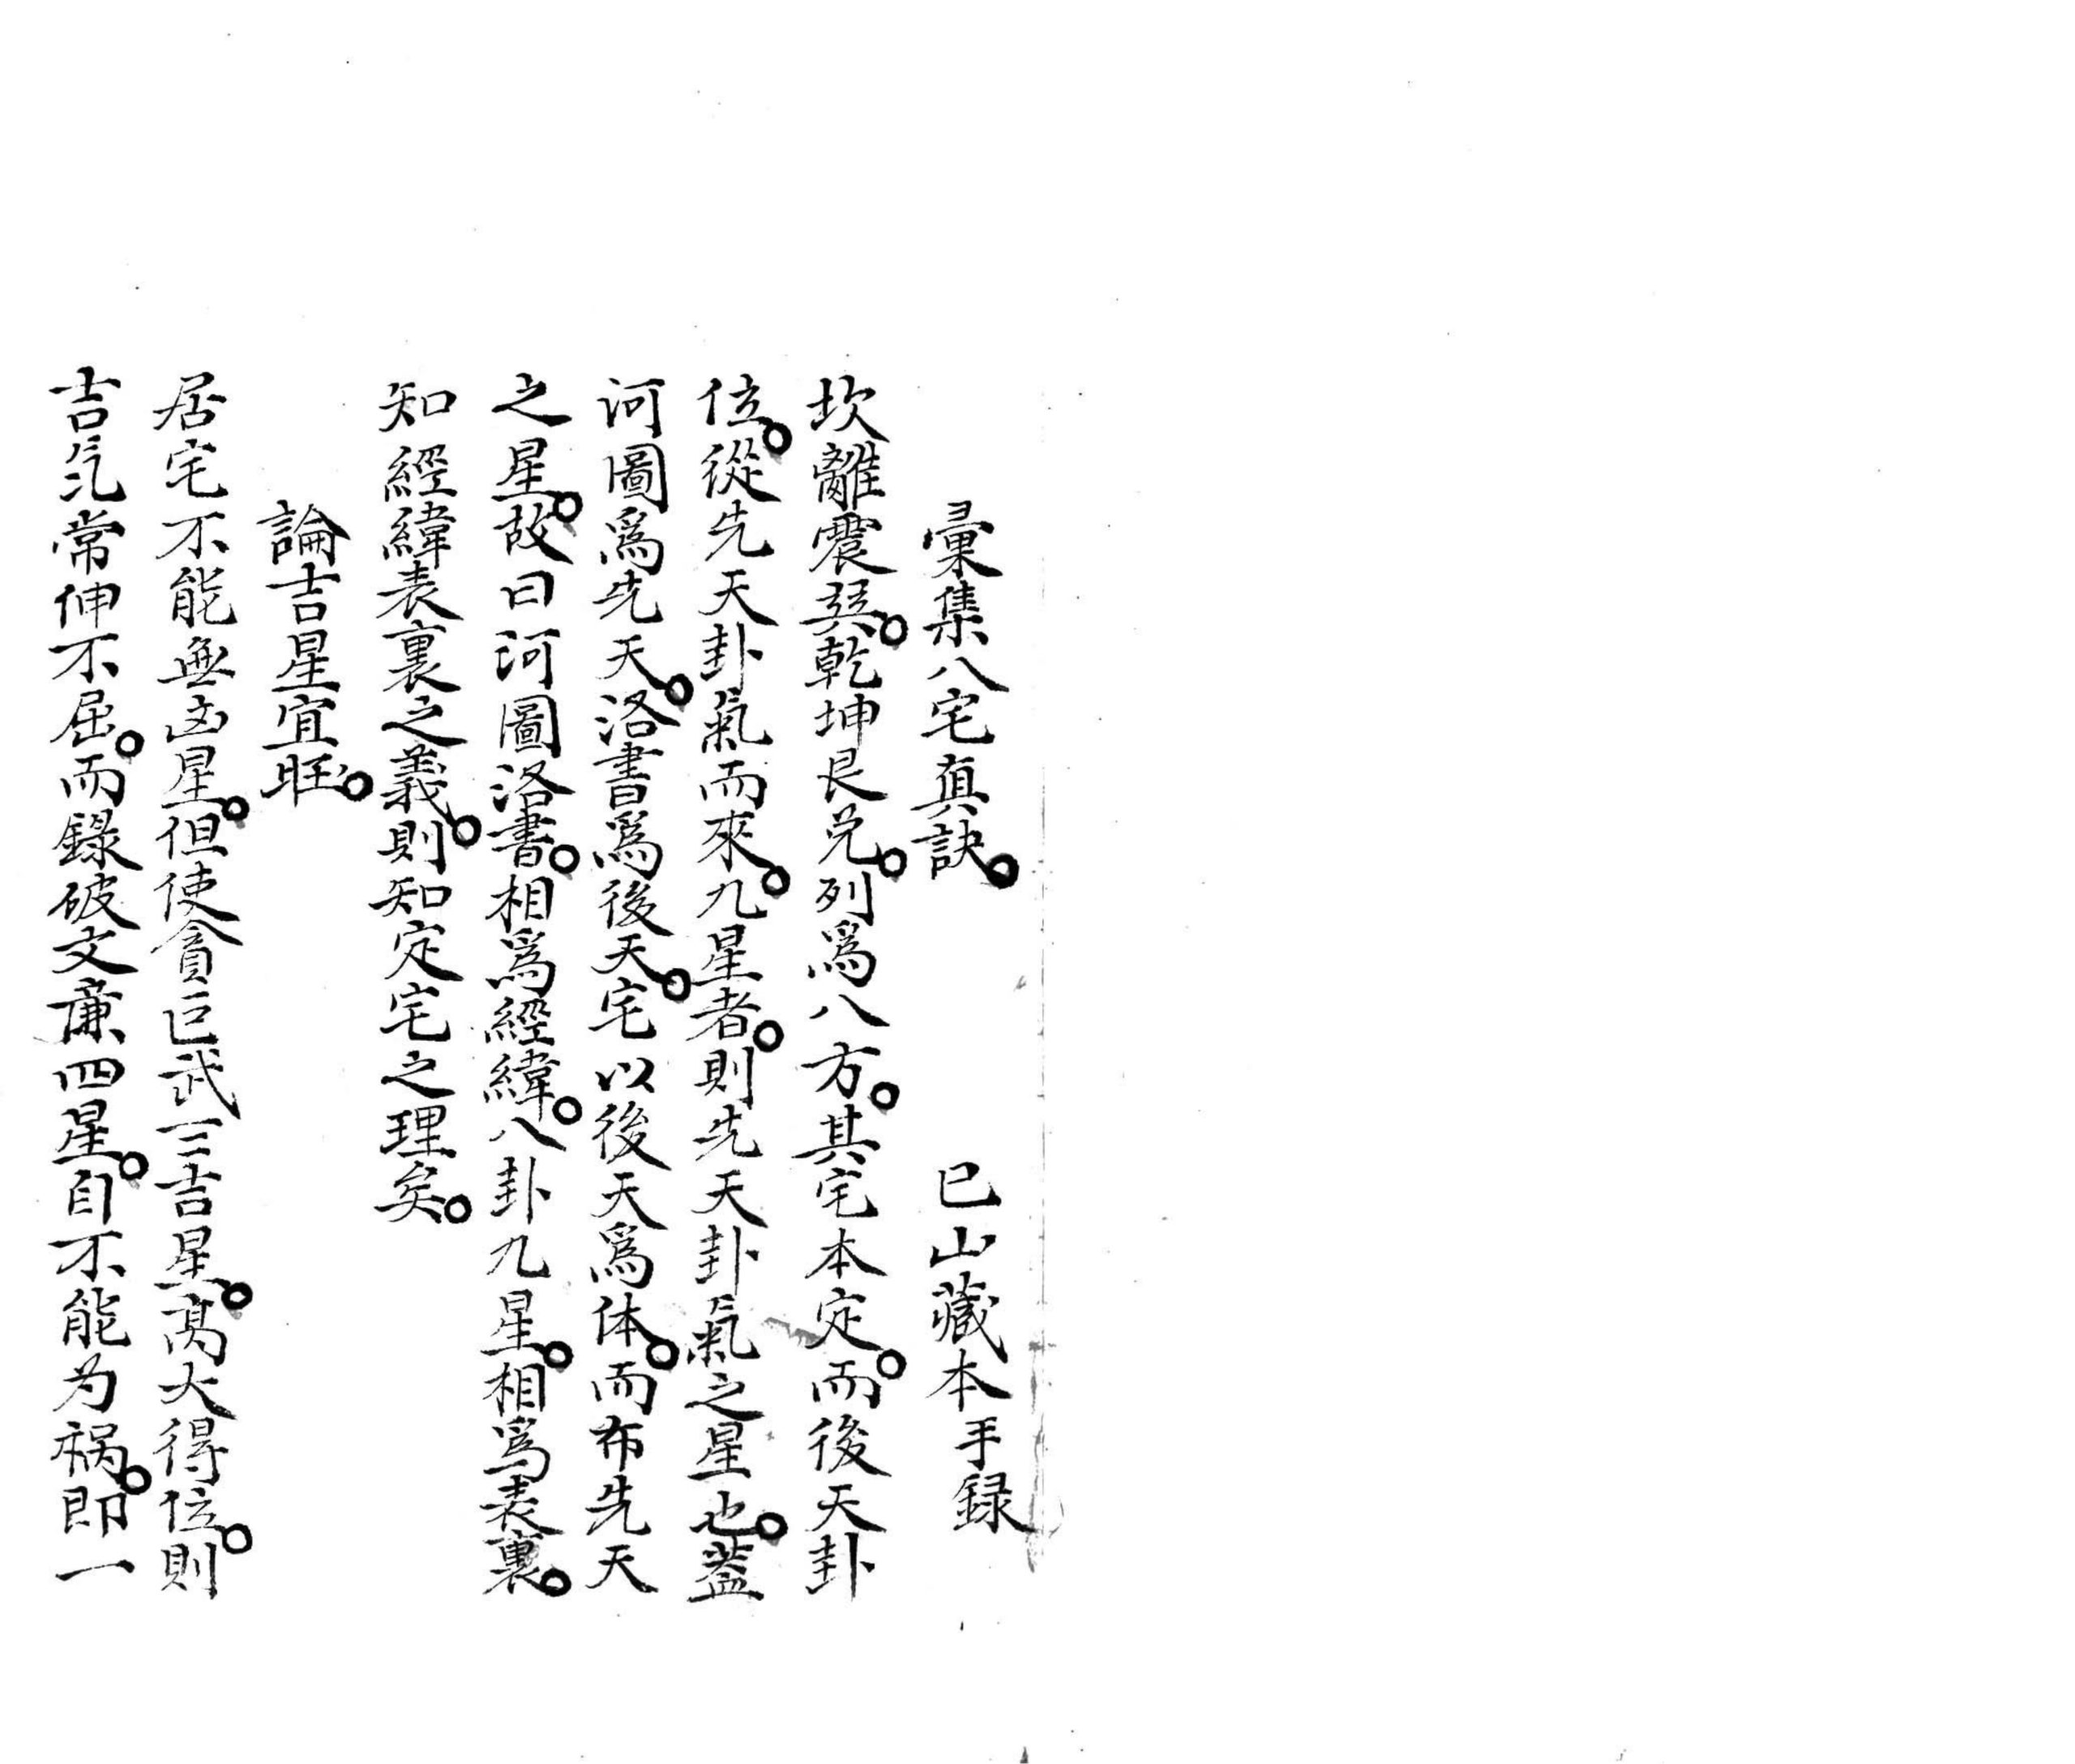 彙集八宅真訣。 巳山藏本手録
坎離震巽。乾坤艮兌。列爲八方。其宅本定。而後天卦
位。從先天卦氣而來。九星者。則先天卦氣之星也。蓋
河圖爲先天。洛書爲後天。宅以後天爲体。而布先天
之星。故曰河圖洛書。相爲經緯。八卦九星。相爲表裏。
知經緯表裏之義。則知定宅之理矣。
論吉星宜旺。
居宅不能無凶星。但使貪巨武三吉星。高大得位。則
吉气常伸不屈。而錄破文廉四星。自不能为祸。即一